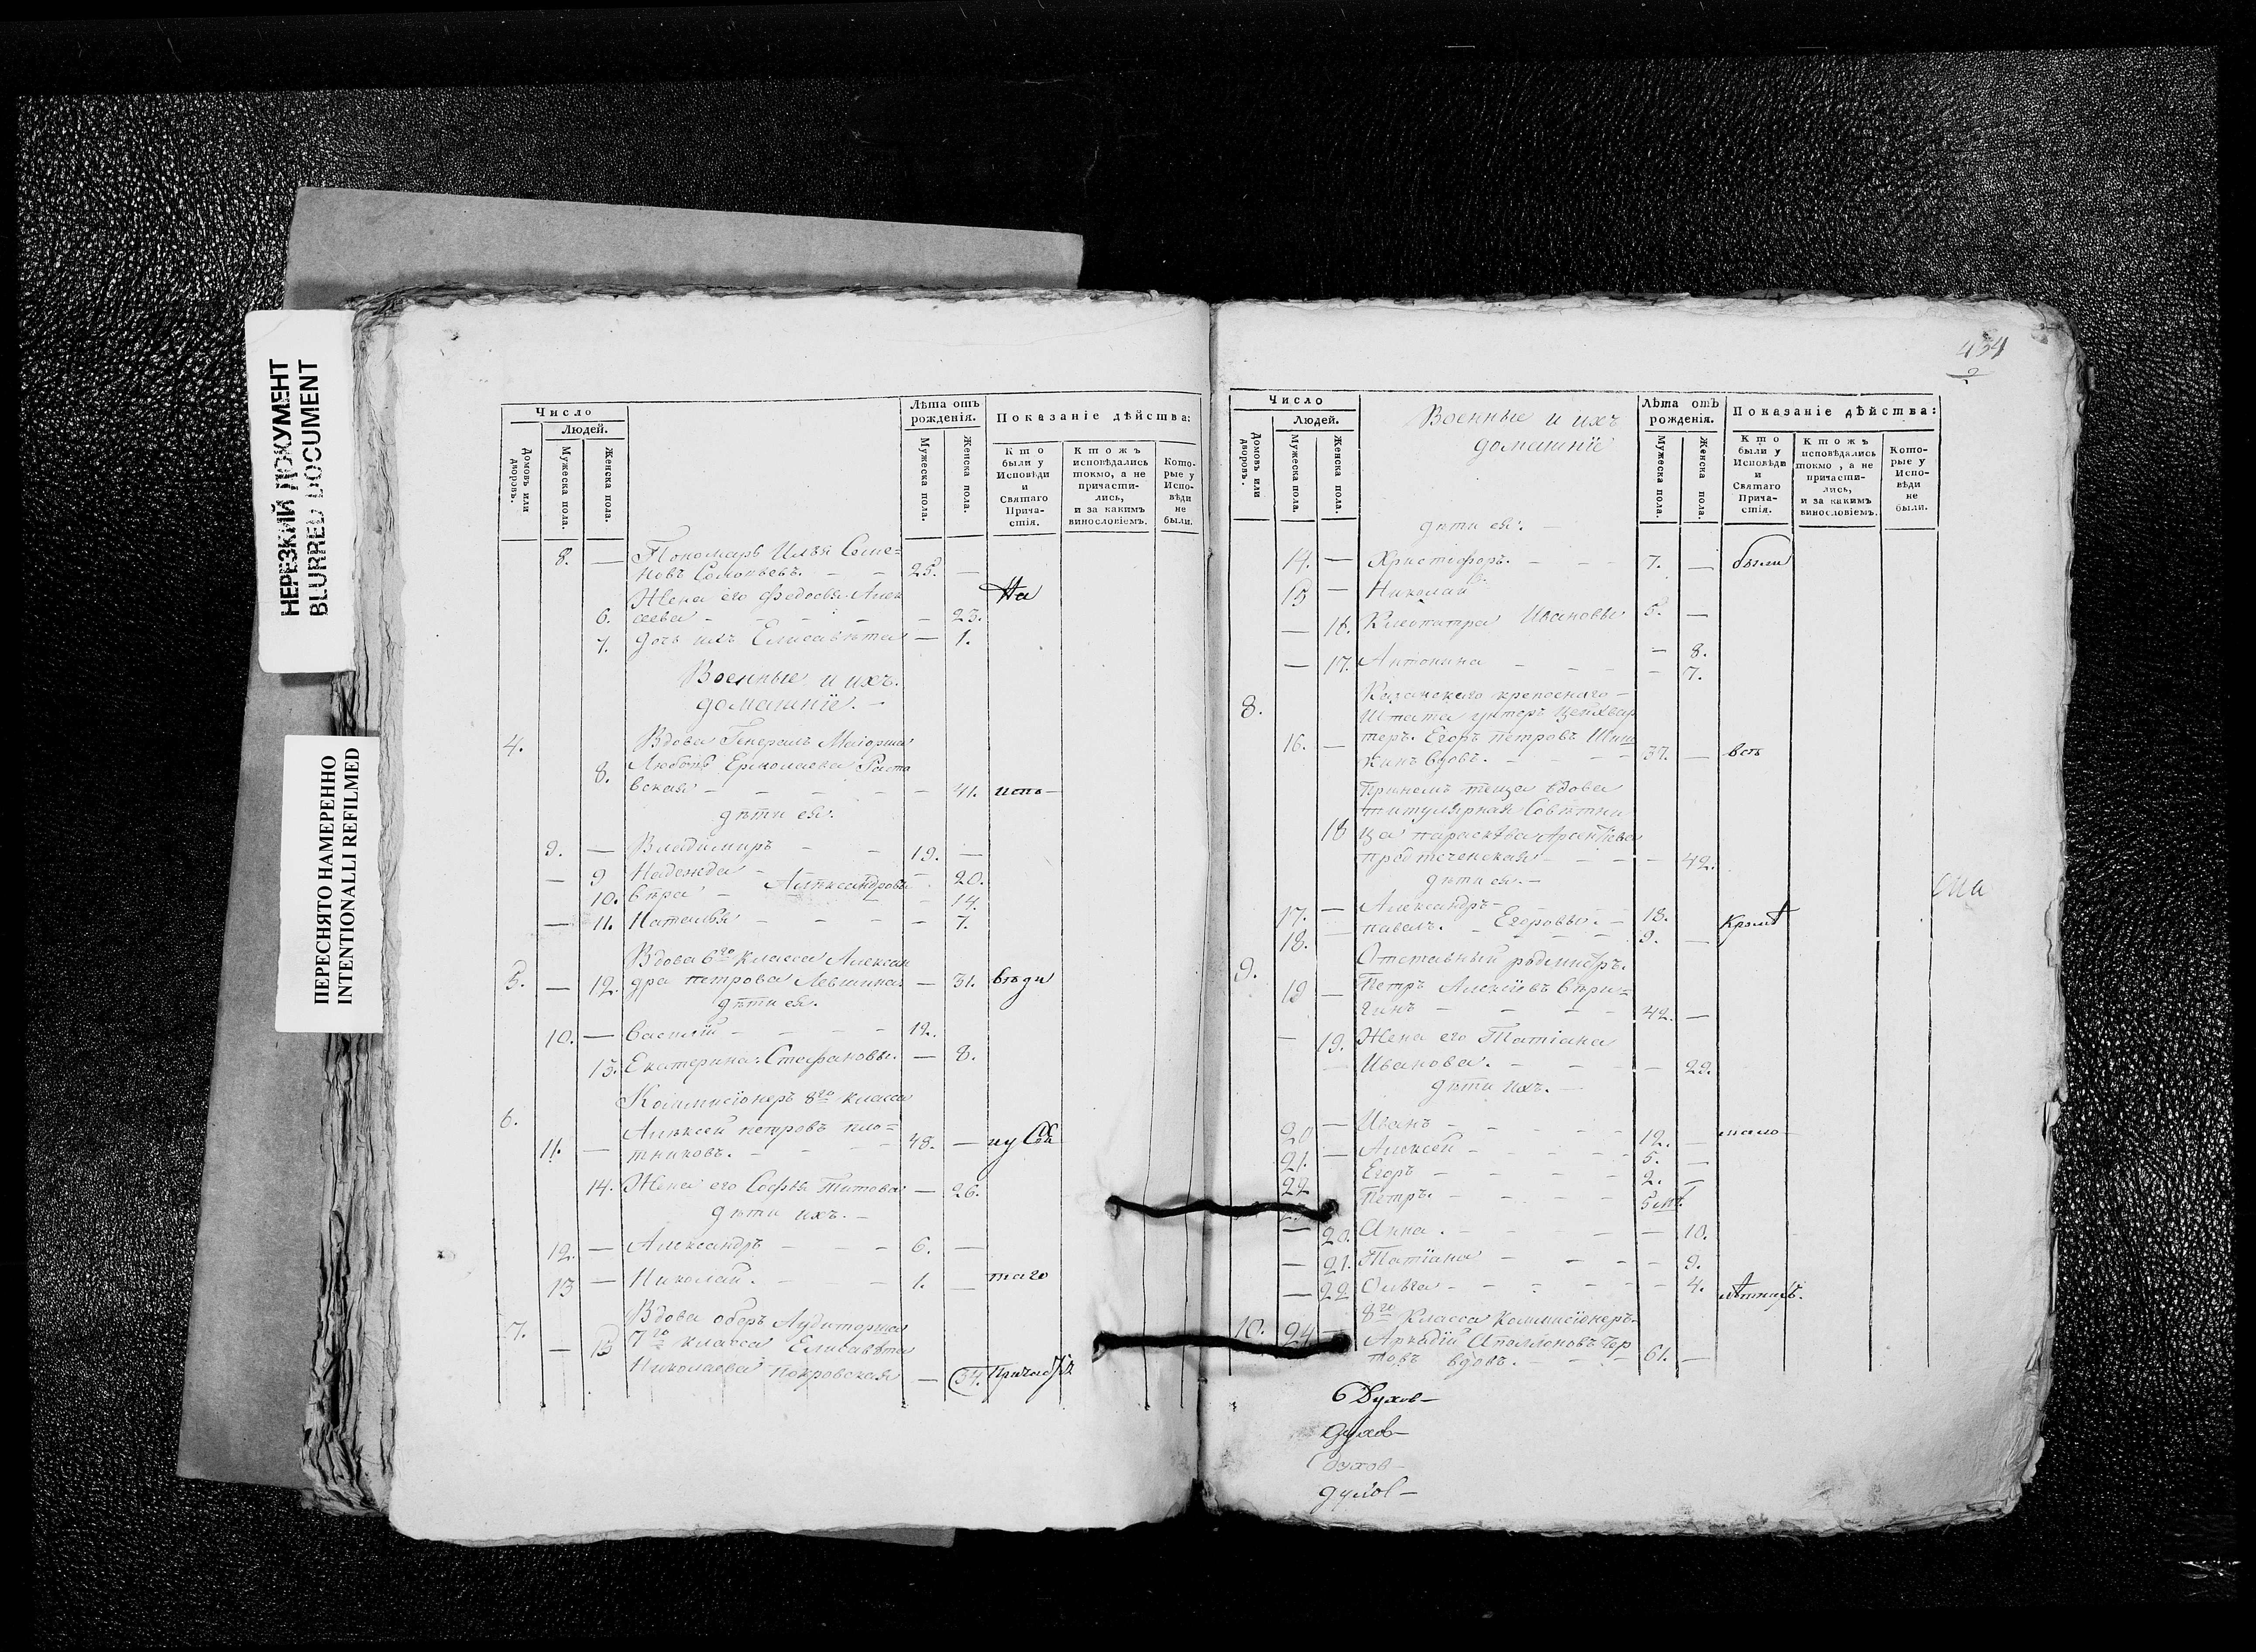 НЕРЕЗКИЙ ДОКУМЕНТ
BLURRED DOCUMENT
ПЕРЕСНЯТО НАМЕРЕННО
INTENTIONALLI REFILMED
Число
Людей.
Домовъ или дворовъ.
Мужеска пола.
Женска пола.
Лѣта отъ рожденія.
Мужеска пола.
Женска пола.
Показаніе дѣйства:
Кто были у Исповѣди и Святаго Прича-стія.
Ктожъ исповѣдались токмо, а не причасти-лись, и за какимъ винословіемъ.
Кото-рые у Испо-вѣди не были.
8. — Пономарь Илья Семе=
новъ 25. —
Жена его Федосья Алек На
6. сеева — 23.
7. дочь ихъ Елисавѣта — 1.
Военные и ихъ
домашніе. —
4. Вдова Генералъ Маіорша
8. Любовь Ермолаева
вская — 41. испо—
дѣти ея.
9. — Владимиръ 19. —
— 9 Надежда — 20.
10. Вѣра — Александровы — 14.
— 11. Наталья — 7.
Вдова 6го класса Алексан
5. — 12. дра Петрова Левшина — 31. вѣди
дѣти ея.
10. — Василій — 12.
13. Екатерина. Стефановы. — 8.
Коммисіонеръ 8го класса
6.
Алексей Петровъ Пло=
11. — тниковъ. — 48. —
14. Жена его Софья Титова — 26.
дѣти ихъ. —
12. — Александръ — 6. —
13 — Николай. — 1. — таго
Вдова оберъ Аудиторша
7. — 15 7го класса Елисавѣта
Николаева Покровская — 34.
434
Число
Людей.
Домовъ или дворовъ.
Мужеска пола.
Женска пола.
Военные и ихъ
домашніе
Лѣта отъ рожденія.
Мужеска пола.
Женска пола.
Показаніе дѣйства:
Кто были у Исповѣди и Святаго Прича-стія.
Ктожъ исповѣдались токмо, а не причасти-лись, и за какимъ винословіемъ.
Кото-рые у Испо-вѣди не были.
дѣти ея. —
14. — Христофоръ. — 7. — были
15 — Николай 5. —
— 16. Клеопатра Ивановы — 8.
— 17. Антонина — 7.
8. Казанскаго крепоснаго —
Штата унтеръ Цейхвар
16. — теръ. Егоръ Петровъ
кинъ вдовъ. — 37. — всѣ
При немъ теща вдова
титулярная Совѣтни
18 ца Параскѣва Арсентіева
— 42.
дѣти ея. —
17. — Александръ — 18.
18. Павелъ. — Егоровы. — 9. — Кромѣ
Отставный родмистръ.
9.
19 — Петръ Алексіевъ Вѣри=
гинъ — 42. —
— 19. Жена его Татіана
Иванова. — 29.
дѣти ихъ. —
20 — Иванъ — 12. —
21. — Алексей — 5. —
22 Егоръ — 2. —
Петръ. —
— 20. Анна. — 10.
— 21. Татіана — 9.
— 22 Ольга — 4.
8го Класса Коммисіонеръ
10. 24 — Аркадій Аполлоновъ Чер
товъ вдовъ. — 61. —
6 Духов—
духов—
духов—
духов—